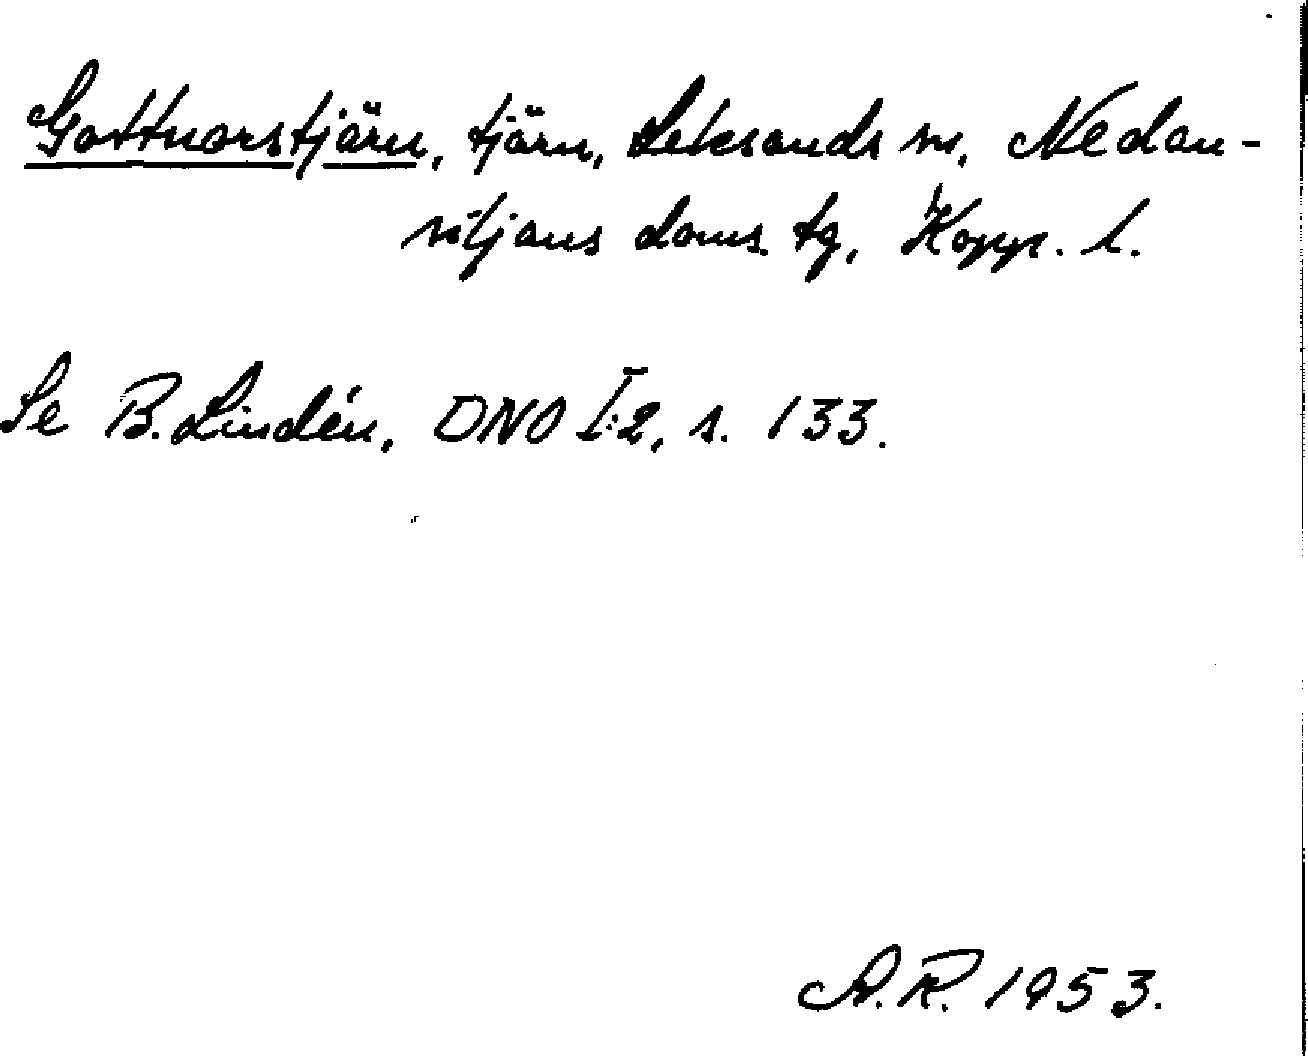 Gottnorstjärn, tjärn, Leksands sn, Nedan-
siljans doms. tg, Kopp. l.
Se B. Lindén, DNO I:2, s. 133.
A.R. 1953.